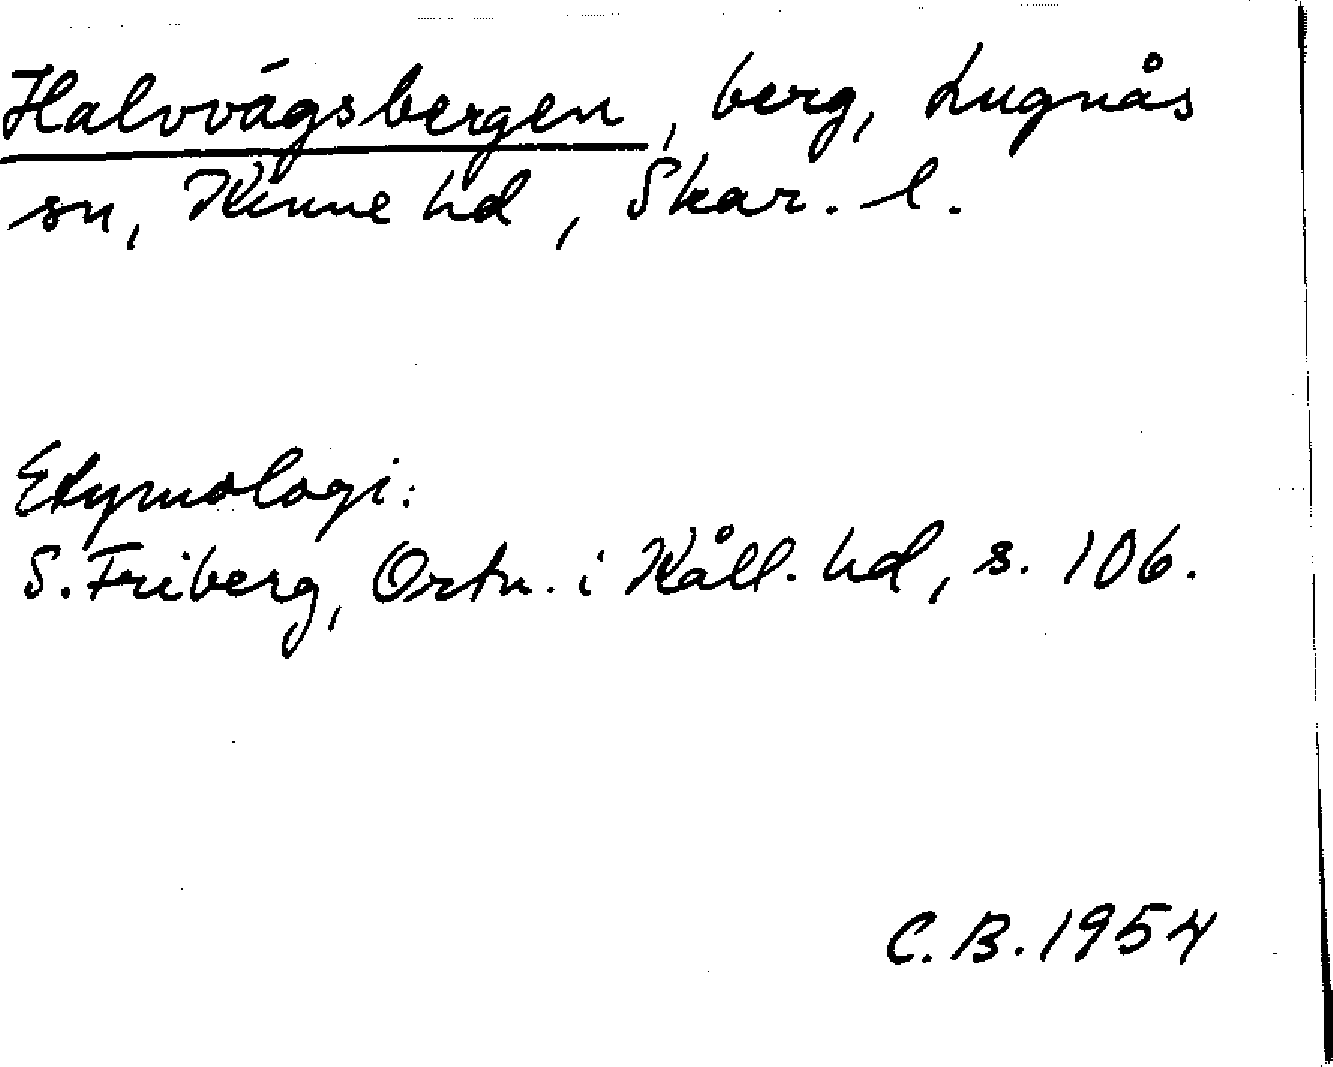 Halvvägsbergen, berg, Lugnås
sn, Kinne hd, Skar. l.
Etymologi:
S. Friberg, Ortn. i Kåll. hd, s. 106.
C.B. 1954